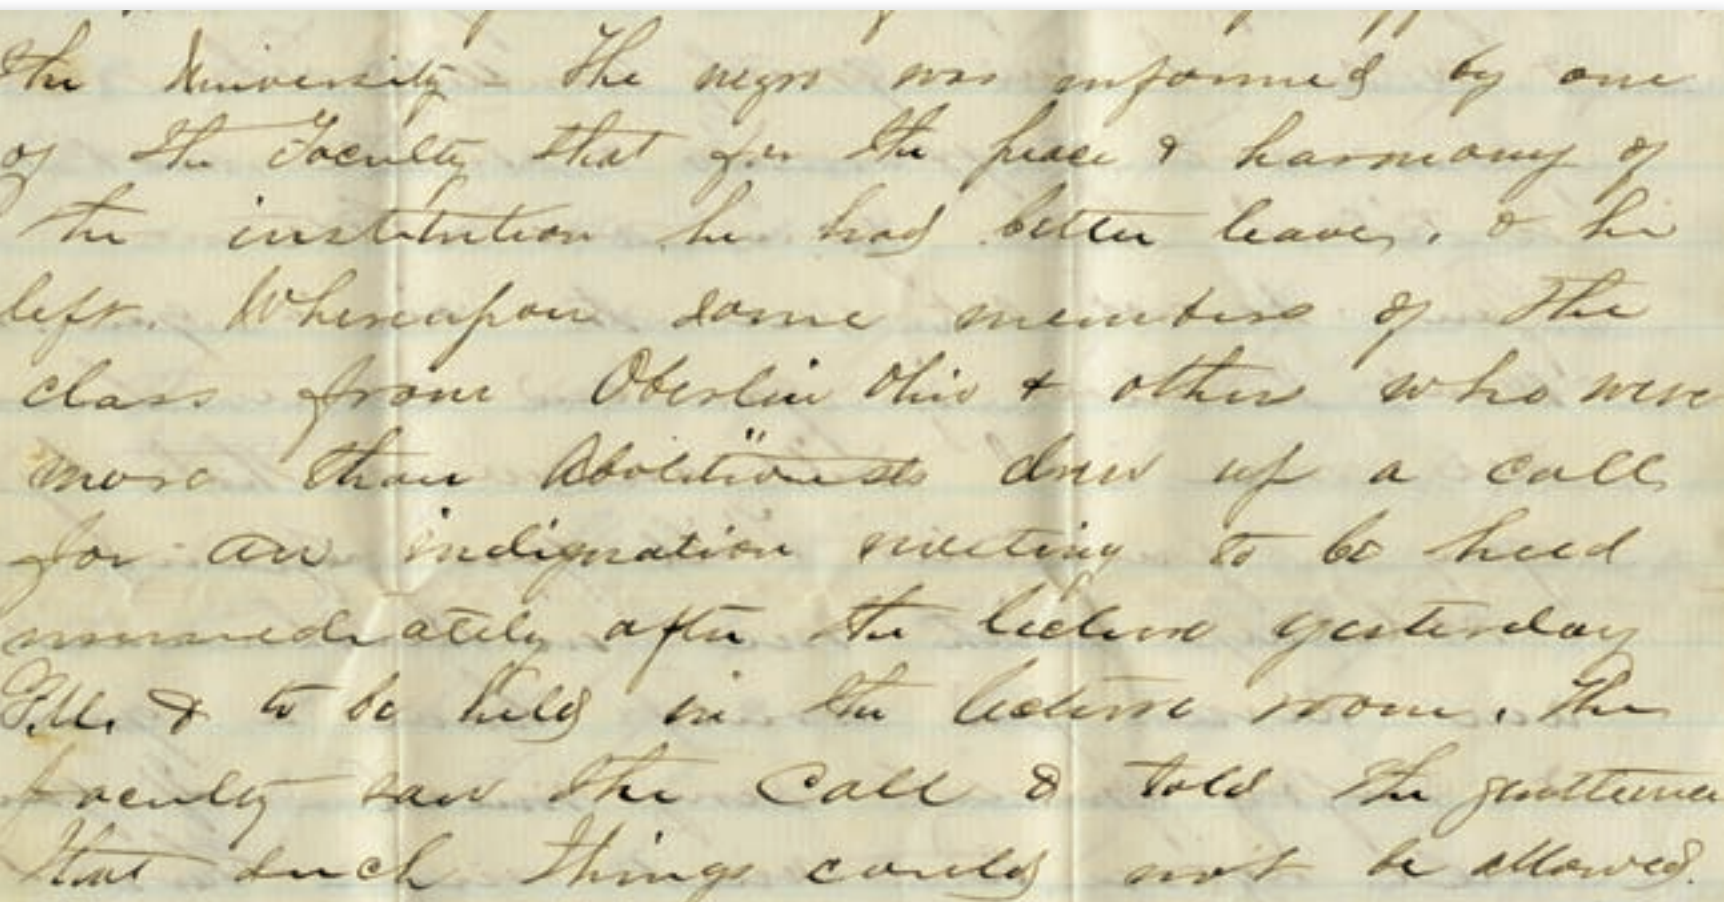 the University - The negro was informed by one
of the Faculty that for the peace & harmony of
the institution he had better leave, & he
left. Whereupon some members of the
class from Oberlin Ohio & other who were
more than Abolitionists drew up a call
for an indignation meeting to be heed
immediately after the lecture yesterday
P.M. & to be held in the lecture room. The
faculty saw the Call & told the gentlemen
that such things could not be allowed.